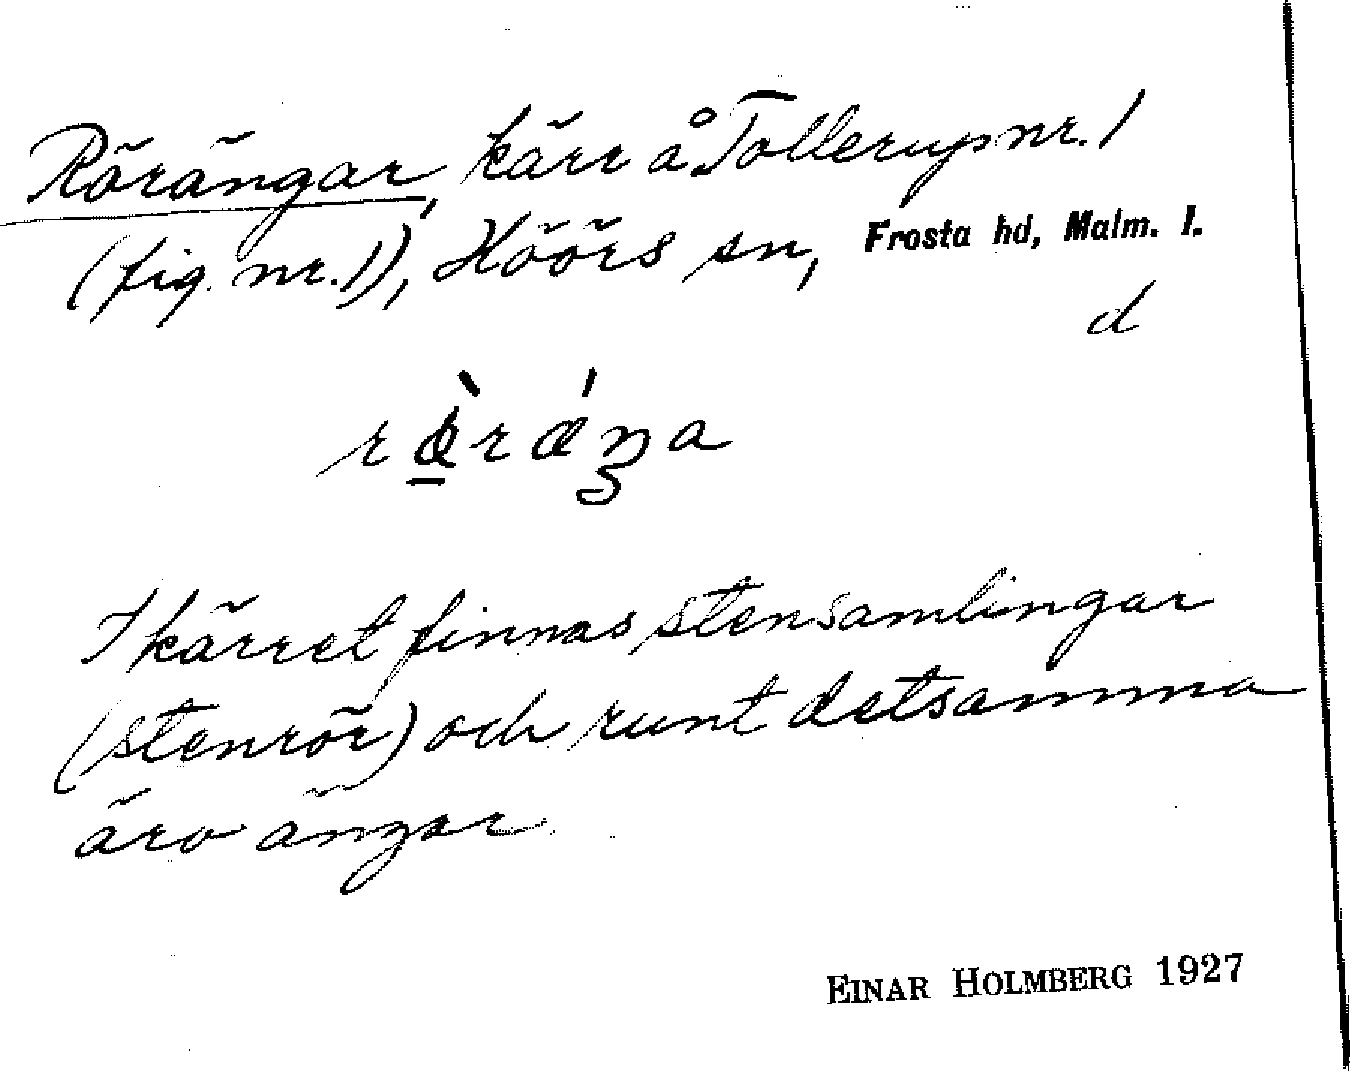 Rörängar, kärr å Tollerup nr. 1
(fig. nr. 1), Höörs sn, Frosta hd, Malm. l.
d
I kärret finnas stensamlingar
(stenrör) och runt detsamma
äro ängar.
EINAR HOLMBERG 1927